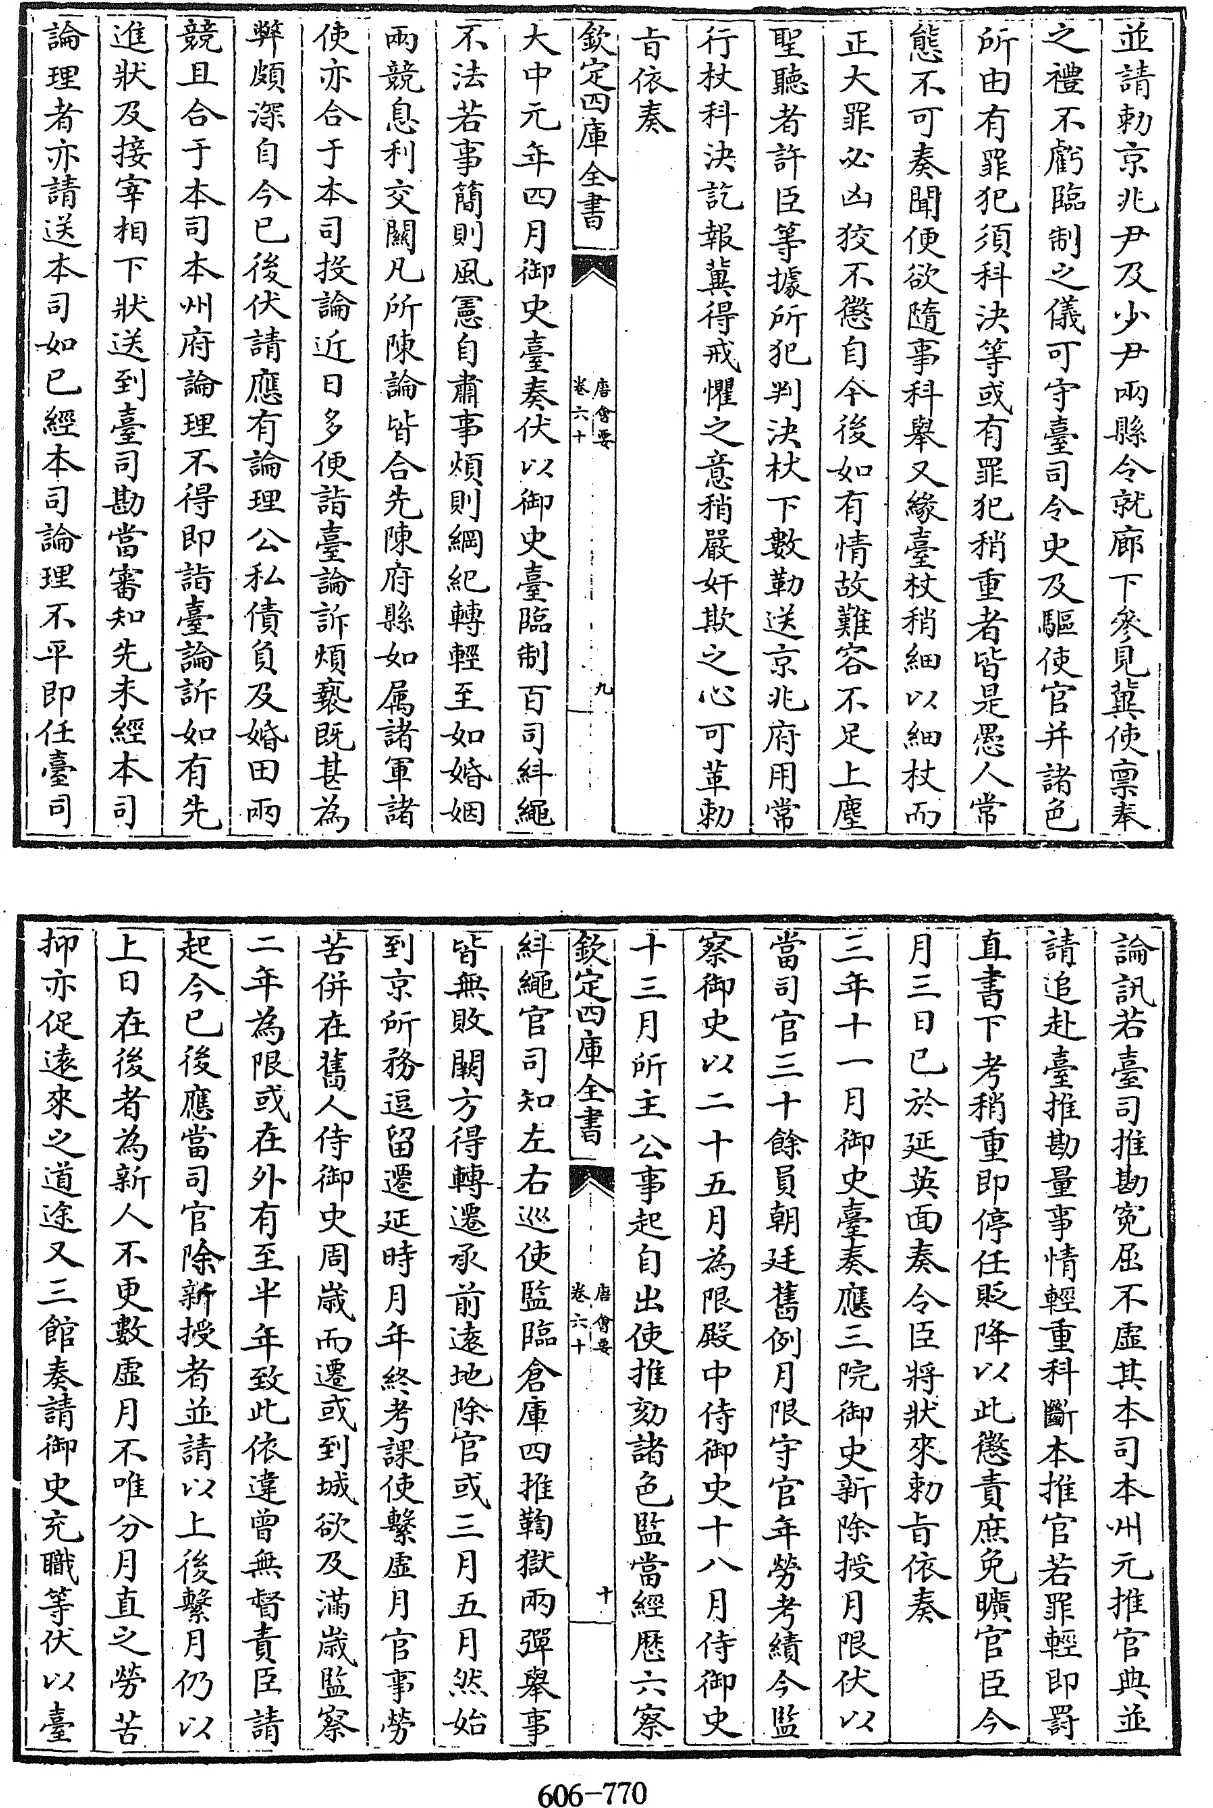 並請勅京兆尹及少尹兩縣令就廊下叅見冀使禀奉
之禮不虧臨制之儀可守臺司令史及驅使官并諸色
所由有罪犯須科決等或有罪犯稍重者皆是愚人常
態不可奏聞便欲隨事科舉又緣臺杖稍細以細杖而
正大罪必凶狡不懲自今後如有情故難容不足上塵
聖聽者許臣等據所犯判決杖下數勒送京兆府用常
行杖科決訖報冀得戒懼之意稍嚴奸欺之心可革勅
㫖依奏
欽定四庫全書
唐會要
卷六十
九
大中元年四月御史臺奏伏以御史臺臨制百司糾繩
不法若事簡則風憲自肅事煩則綱紀轉輕至如婚姻
兩競息利交關凡所陳論皆合先陳府縣如属諸軍諸
使亦合于本司投論近日多便詣臺論訴煩褻既甚為
弊頗深自今已後伏請應有論理公私債負及婚田兩
競且合于本司本州府論理不得即詣臺論訴如有先
進狀及接宰相下狀送到臺司勘當審知先未經本司
論理者亦請送本司如已經本司論理不平即任臺司
論訊若臺司推勘寃屈不虛其本司本州元推官典並
請追赴臺推勘量事情輕重科斷本推官若罪輕即罰
直書下考稍重即停任貶降以此懲責庶免曠官臣今
月三日已於延英面奏令臣將狀來勅㫖依奏
三年十一月御史臺奏應三院御史新除授月限伏以
當司官三十餘員朝廷舊例月限守官年勞考績今監
察御史以二十五月為限殿中侍御史十八月侍御史
十三月所主公事起自出使推劾諸色監當經歴六察
欽定四庫全書
唐會要
卷六十
十
糾繩官司知左右巡使監臨倉庫四推鞫獄兩彈舉事
皆無敗闕方得轉遷承前遠地除官或三月五月然始
到京所務逗留遷延時月年終考課使繫虛月官事勞
苦併在舊人侍御史周歳而遷或到城欲及滿歳監察
二年為限或在外有至半年致此依違曾無督責臣請
起今已後應當司官除新授者並請以上後繫月仍以
上日在後者為新人不更數虛月不唯分月直之勞苦
抑亦促遠來之道途又三館奏請御史充職等伏以臺
606-770